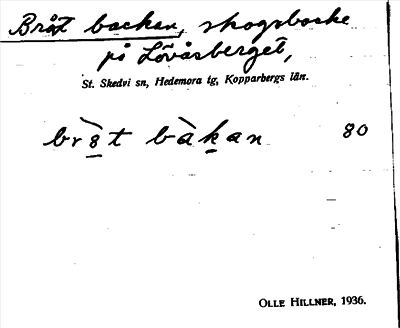 Bråt backan, skogsbacke
på Lövåsberget,
St. Skedvi sn, Hedemora tg, Kopparbergs län.
br8̲t bàk̲an 80
OLLE HILLNER, 1936.